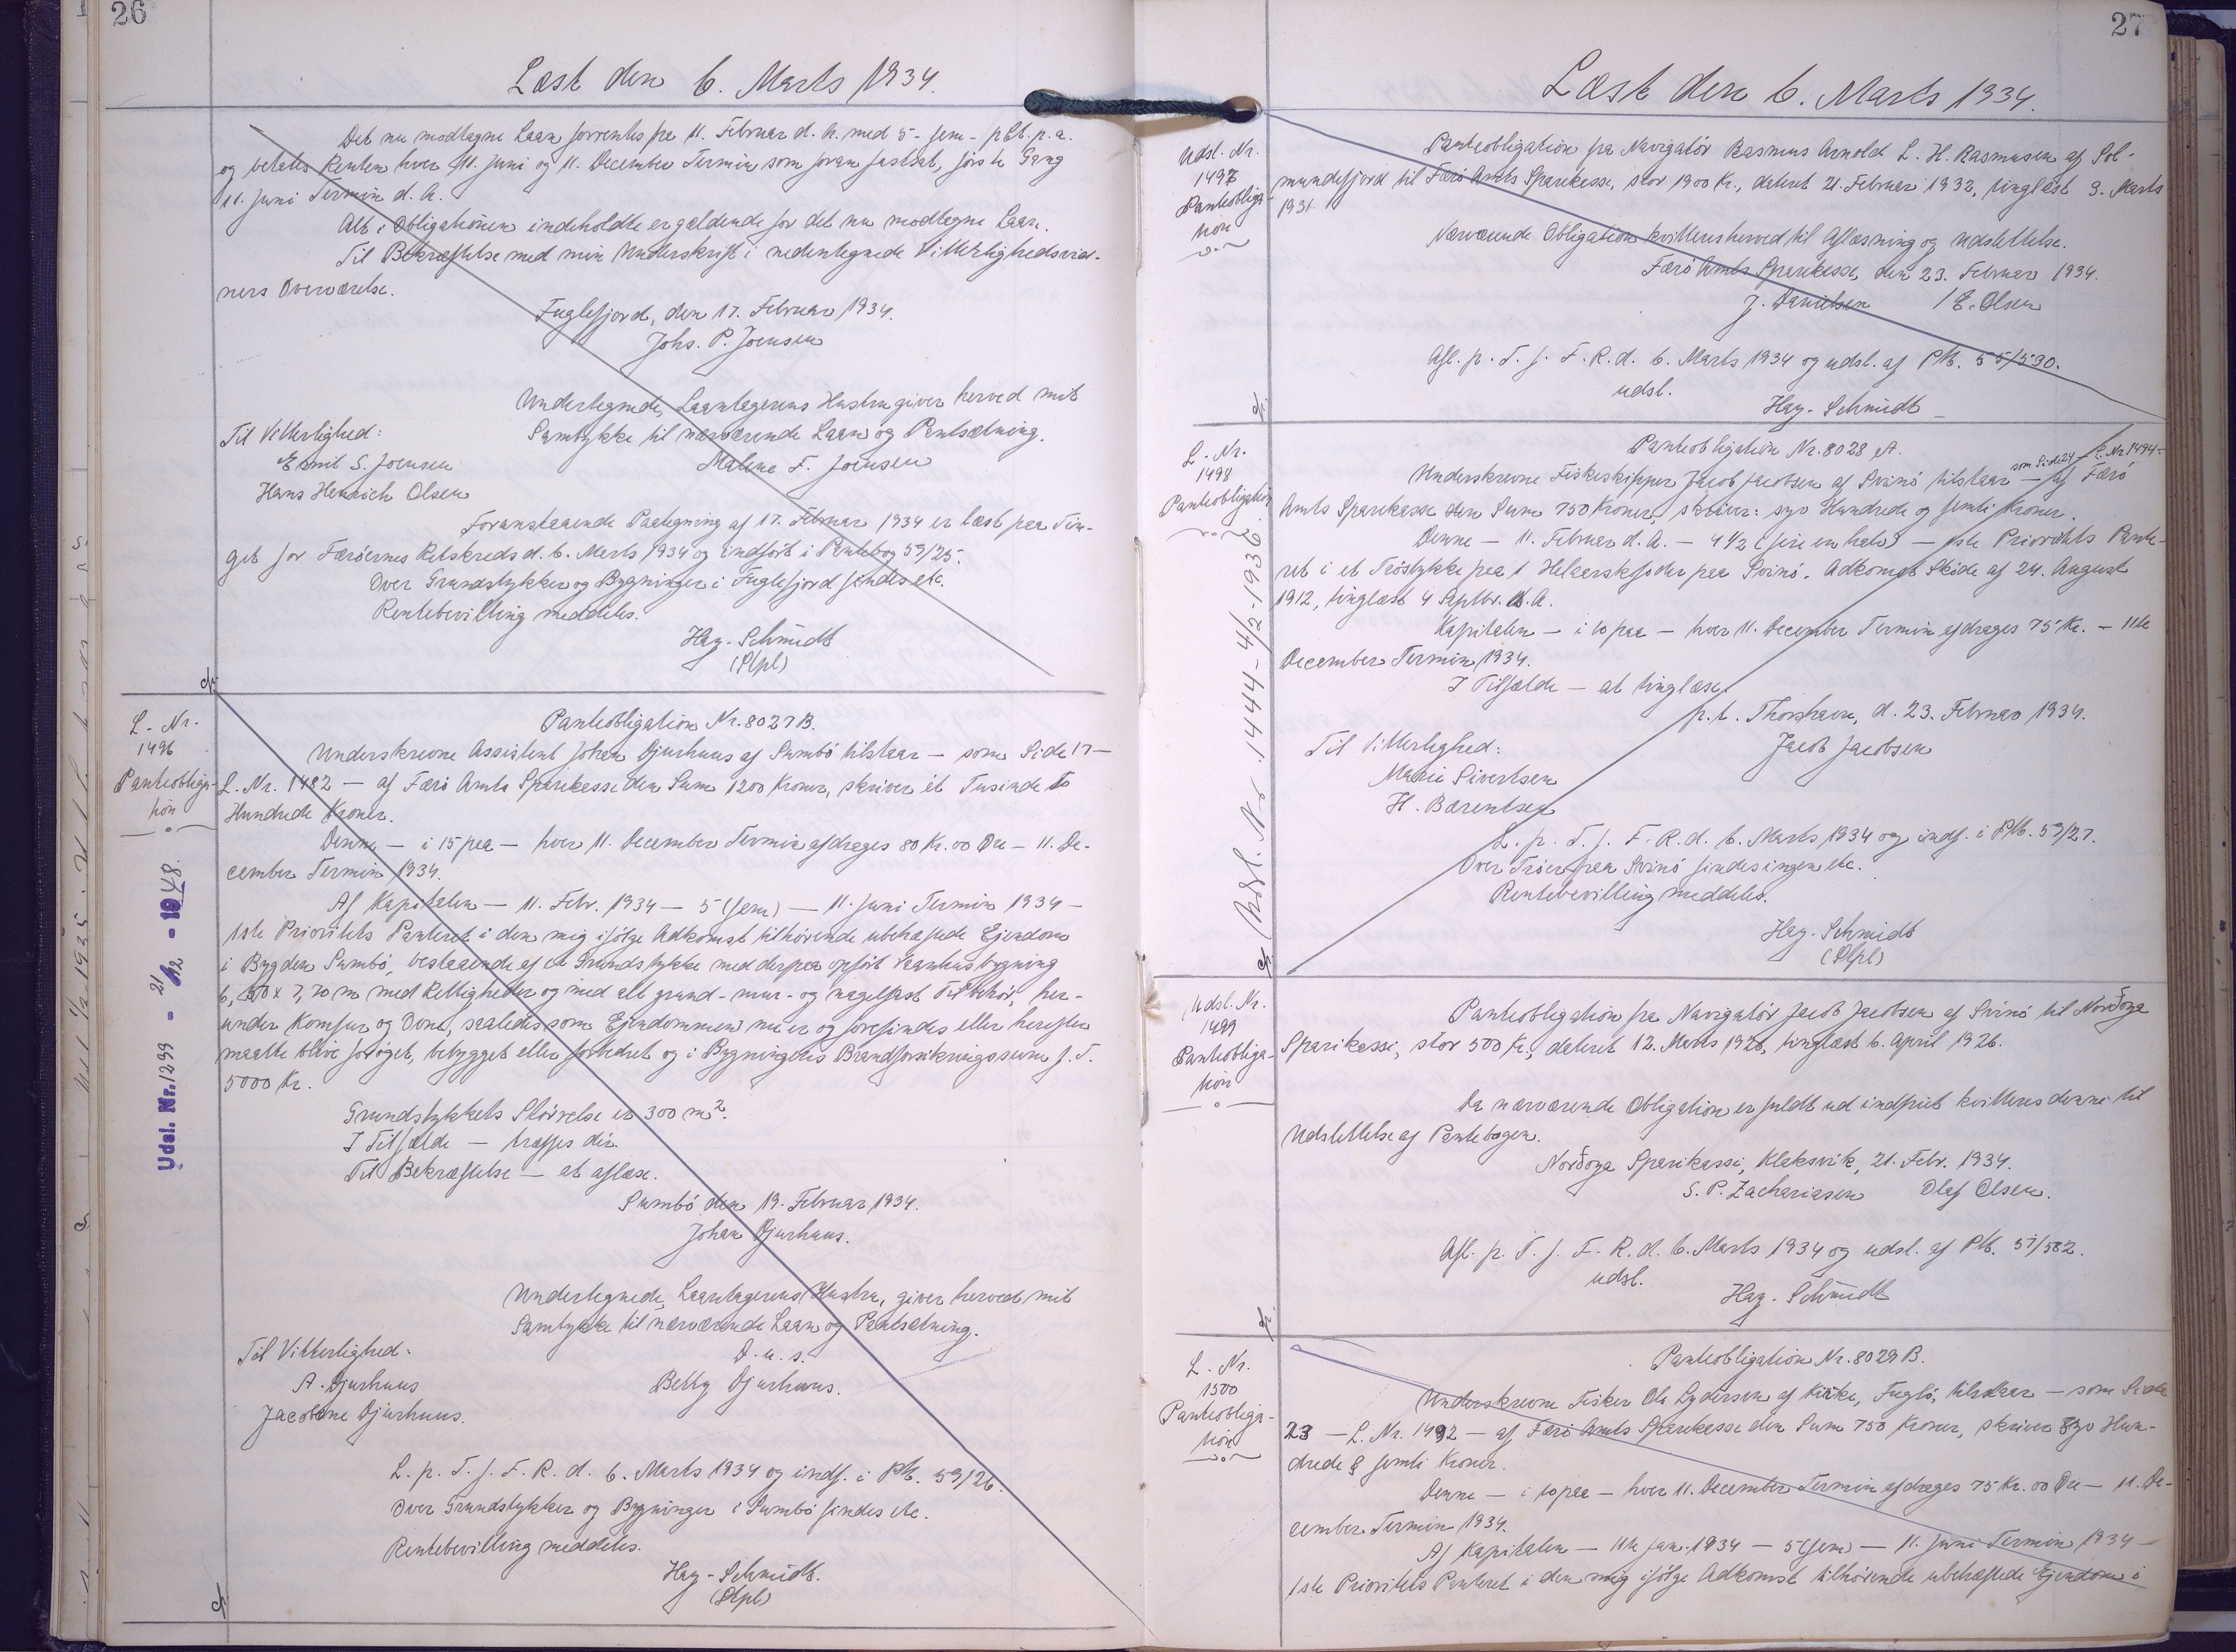 26
Læst den 6. Marts 1934.
Det nu modtagne Laan forrentes fra 11. Februar d. A. med 5 - fem - pCt. p. a.
og betales Renten hver 11. Juni og 11. December Termin som foran fastsat, første Gang
11. Juni Termin d. A.
Alt i Obligationen indeholdte er gældende for det nu modtagne Laan.
Til Bekræftelse med min Underskrift i nedentegnede Vitterlighedsvid-
ners Overværelse.
Fuglefjord, den 17. Februar 1934.
Johs. P. Joensen
Undertegnede, Laantagerens Hustru giver herved mit
Til Vitterlighed: Samtykke til nærværende Laan og Pantsætning.
Emil S. Joensen Malene F. Joensen
Hans Henrich Olsen
Foranstaaende Paategning af 17. Februar 1934 er læst paa Tin-
get for Færøernes Retskreds d. 6. Marts 1934 og indført i Pantebog 59/25.
Over Grundstykker og Bygninger i Fuglefjord findes etc.
Rentebevilling meddeles.
Hay-Schmidt
(Stpl)
L. Nr.
1496
Panteobliga-
tion
Udsl. Nr. 1299 - 21/12 - 1948.
Panteobligation Nr. 8027 B.
Underskrevne Assistent Johan Djurhuus af Sumbø tilstaar — som Side 17 —
L. Nr. 1482 — af Færø Amts Sparekasse den Sum 1200 Kroner, skriver ét Tusinde to
Hundrede Kroner.
Denne — i 15 paa — hver 11. December Termin afdrages 80 Kr. 00 Øre — 11. De-
cember Termin 1934.
Af Kapitalen — 11. Febr. 1934 — 5 (fem) — 11. Juni Termin 1934 —
1ste Prioritets Panteret i den mig ifølge Adkomst tilhørende ubehæftede Ejendom
i Bygden Sumbø, bestaaende af et Grundstykke med derpaa opført Vaanhusbygning
6,50 x 7,70 m med Rettigheder og med alt grund- mur- og nagelfast Tilbehør, her-
under Komfur og Ovne, saaledes som Ejendommen nu er og forefindes eller herefter
maatte blive forøget, bebygget eller forbedret og i Bygningens Brandforsikringssum f. T.
5000 Kr.
Grundstykkets Størrelse er 300 m².
I Tilfælde — træffes dér.
Til Bekræftelse — at aflæse.
Sumbø den 19. Februar 1934.
Johan Djurhuus.
Undertegnede, Laantagerens Hustru, giver herved mit
Samtykke til nærværende Laan og Pantsætning.
Til Vitterlighed: D. u. s.
A. Djurhuus Betty Djurhuus.
Jacobine Djurhuus.
L. p. T. f. F. R. d. 6. Marts 1934 og indf. i Pb. 59/26.
Over Grundstykker og Bygninger i Sumbø findes etc.
Rentebevilling meddeles.
Hay-Schmidt.
(Stpl)
27
Læst den 6. Marts 1934.
Udsl. Nr.
1497
Panteobliga-
tion
Panteobligation fra Navigatør Rasmus Arnold L. H. Rasmusen af Søl-
mundefjord til Færø Amts Sparekasse, stor 1900 Kr., dateret 21. Februar 1932, tinglæst 3. Marts
1931.
Nærværende Obligation kvitteres herved til Aflæsning og Udslettelse.
Færø Amts Sparekasse, den 23. Februar 1934.
J. Danielsen / E. Olsen
Afl. p. T. f. F. R. d. 6. Marts 1934 og udsl. af Pb. 55/530.
udsl.
Hay-Schmidt
L. Nr.
1498
Panteobligation
Udsl. Nr. 1444 - 4/2 - 1936
Panteobligation Nr. 8028 A.
som Side 24 L. Nr. 1494 -
Underskrevne Fiskeskipper Jacob Jacobsen af Svinø tilstaar — af Færø
Amts Sparekasse den Sum 750 Kroner, skriver: syv Hundrede og femti Kroner.
Denne — 11. Februar d. A. — 4 1/2 (fire en halv) — 1ste Prioritets Pante-
ret i et Trøstykke paa 1 Helaarskofoder paa Svinø. Adkomst Skøde af 24. August
1912, tinglæst 4 Septbr. s. A.
Kapitalen — i 10 paa — hver 11. December Termin afdrages 75 Kr. — 11te
December Termin 1934.
I Tilfælde — at tinglæse.
p. t. Thorshavn, d. 23. Februar 1934.
Til Vitterlighed: Jacob Jacobsen
Marie Sivertsen
H. Bærentsen
L. p. T. f. F. R. d. 6. Marts 1934 og indf. i Pb. 59/27.
Over Trøer paa Svinø findes ingen etc.
Rentebevilling meddeles.
Hay-Schmidt
(Stpl)
Udsl. Nr.
1499
Panteobliga-
tion
Panteobligation fra Navigatør Jacob Jacobsen af Svinø til Norðoya
Sparikassi, stor 500 Kr., dateret 12. Marts 1926, tinglæst 6. April 1926.
Da nærværende Obligation er fuldt ud indfriet kvitteres denne til
Udslettelse af Pantebogen.
Norðoya Sparikassi, Klaksvik, 21. Febr. 1934.
S. P. Zachariasen Olaf Olsen.
Afl. p. T. f. F. R. d. 6. Marts 1934 og udsl. af Pb. 51/582.
udsl.
Hay-Schmidt
L. Nr.
1500
Panteobliga-
tion
Panteobligation Nr. 8029 B.
Underskrevne Fisker Ole Lydersen af Kirke, Fuglø, tilstaar — som Side
23 — L. Nr. 1492 — af Færø Amts Sparekasse den Sum 750 Kroner, skriver Syv Hun-
drede & femti Kroner.
Denne — i 10 paa — hver 11. December Termin afdrages 75 Kr. 00 Øre — 11. De-
cember Termin 1934.
Af Kapitalen — 11te Jan. 1934 — 5 (fem) — 11. Juni Termin 1934 —
1ste Prioritets Panteret i den mig ifølge Adkomst tilhørende ubehæftede Ejendom i